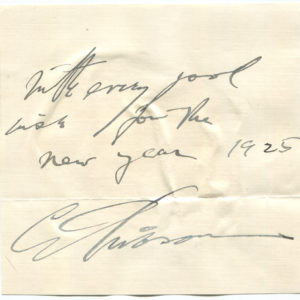 with every good
wish for the
new year 1925
C D Gibson